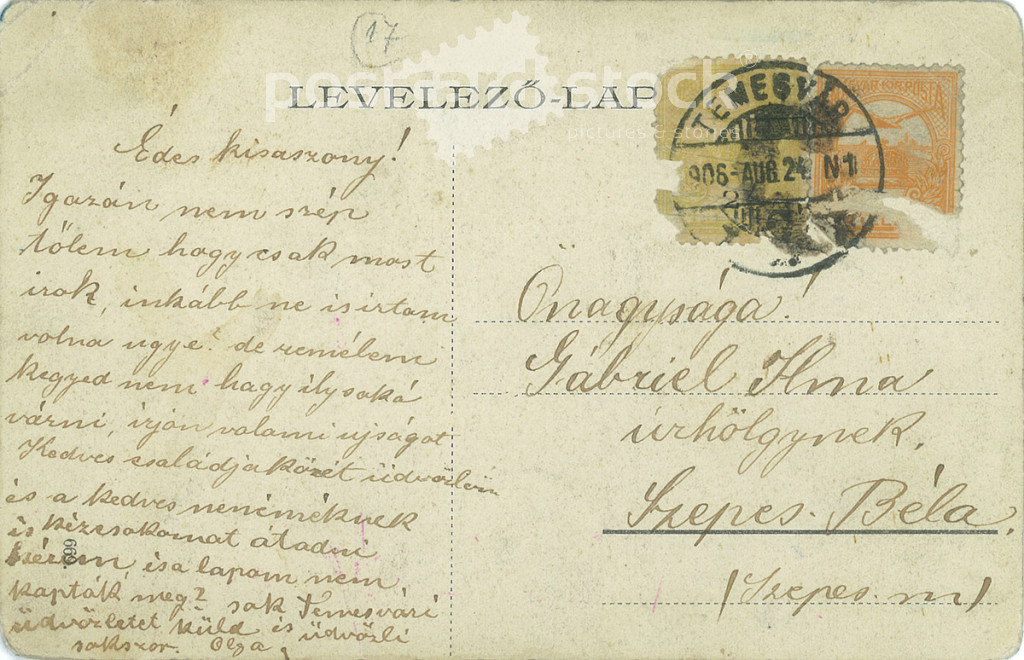 17
postcard stock
pictures & stories
LEVELEZŐ-LAP
TEMESVÁR
906-AUG.24. N1
Édes kisaszony!
Igazán nem szép
tőlem hogy csak most
irok, inkább ne is irtam
volna ugye? de remélem
kegyed nem hagy ily soká
várni, irjon valami ujságot
Kedves családja közét üdvözlem
és a kedves nenéméknek
is kézcsokomat átadni
kérem, is a lapom nem
kapták meg? sok Temesvári
üdvözletet küld is üdvözli
sokszor. Olga
699.
Őnagysága!
Gábriel Ilma
úrhölgynek,
Szepes-Béla.
(Szepes. m)